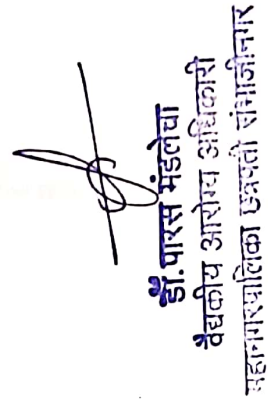 डॉ. पारस मंडलेचा
वैद्यकीय आरोग्य अधिकारी
महानगरपालिका छत्रपती संभाजीनगर